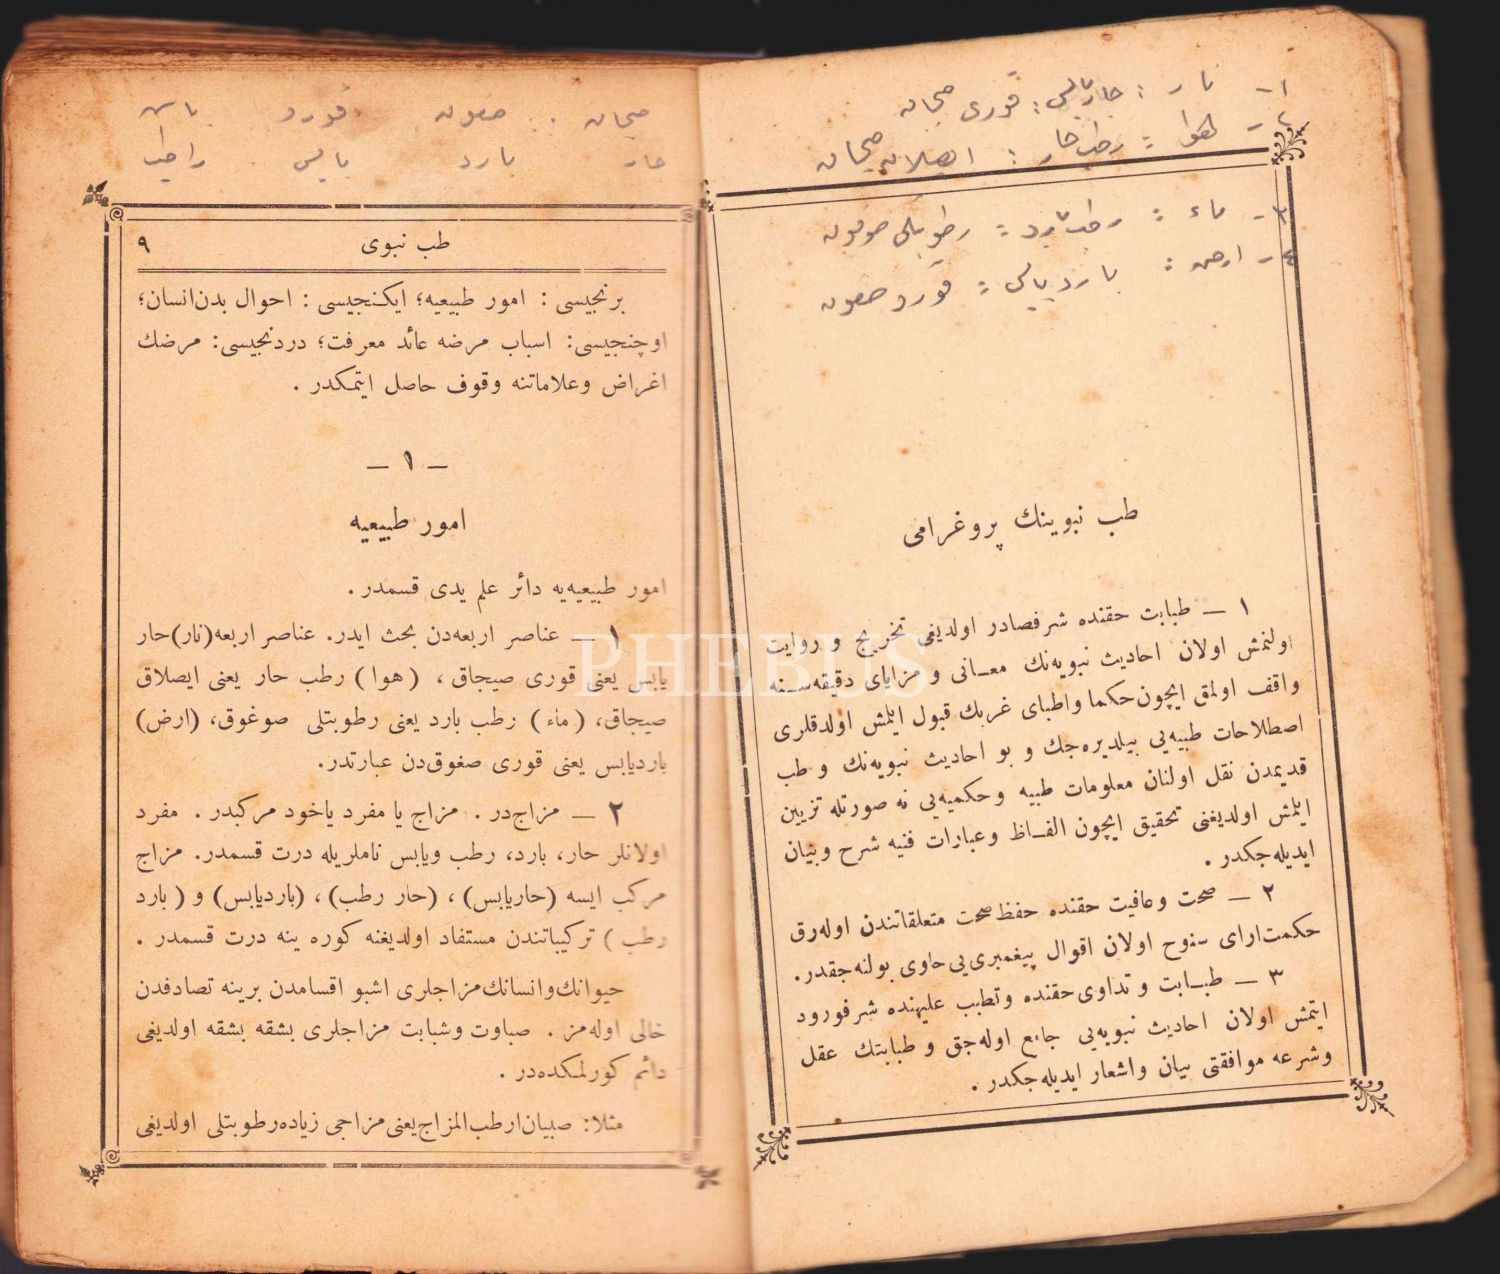 ١ـ نار : حار یابس : قوری صیجاق
٢ـ هوا : رطب حار : ایصلاق صیجاق
٣ـ ماء : رطب بارد : رطوبتلی صوغوق
٤ـ ارض : بارد یابس : قورو صغوق
طب نبوینك پروغرامی
١ — طبابت حقنده شرفصادر اولدیغی تخریج و روایت
اولنمش اولان احادیث نبویه‌نك معـانی و مزایای دقیقه‌سـنه
واقف اولمق ایچون حکما و اطبای غربك قبول ایلمش اولدقلری
اصطلاحات طبیه‌یی بیلدیره‌جك و بو احادیث نبویه‌نك و طب
قدیمدن نقل اولنان معلومات طبیه و حکمیه‌یی نه صورتله تزیین
ایلمش اولدیغنی تحقیق ایچون الفـاظ و عبارات فنیه شرح و بیان
ایدیله‌جکدر .
٢ — صحت و عافیت حقنده حفظ صحت متعلقاتندن اوله‌رق
حکمت‌ارای سنوح اولان اقوال پیغمبری‌یی حاوی بولنه‌جقدر.
٣ — طبـابت و تداوی حقنده و تطبب علیهنده شرفورود
ایتمش اولان احادیث نبویه‌یی جامع اوله‌جق و طبابتك عقل
و شرعه موافقتی بیان و اشعار ایدیله‌جکدر .
صیجاق . صغوق قورو یاش
حار بارد یابس راطب
طب نبوی ٩
برنجیسی : امور طبیعیه؛ ایکـنجیسی : احوال بدن‌انسان؛
اوچنجیسی: اسباب مرضه عائد معرفت؛ دردنجیسی: مرضك
اغراض و علاماتنه وقوف حاصل ایتمکدر .
— ١ —
امور طبیعیه
امور طبیعیه‌یه دائر علم یدی قسمدر.
١ — عناصر اربعه‌دن بحث ایدر. عناصر اربعه (نار) حار
یابس یعنی قوری صیجاق ، (هوا) رطب حار یعنی ایصلاق
صیجاق، (ماء) رطب بارد یعنی رطوبتلی صوغوق، (ارض)
باردیابس یعنی قوری صغوق‌دن عبارتدر.
٢ — مزاج‌در . مزاج یا مفرد یاخود مرکبدر . مفرد
اولانلر حار، بارد، رطب ویابس ناملریله درت قسمدر. مزاج
مرکب ایسه (حاریابس) ، (حار رطب) ، (باردیابس) و (بارد
رطب) ترکیباتندن مستفاد اولدیغنه کوره ینه درت قسمدر .
حیوانك وانسانك مزاجلری اشبو اقسامدن برینه تصادفدن
خالی اوله‌مز . صباوت وشبابت مزاجلری بشقه بشقه اولدیغی
دائم کورلمکده‌در .
مثلا: صبیان ارطب المزاج یعنی مزاجی زیاده رطوبتلی اولدیغی
PHEBUS